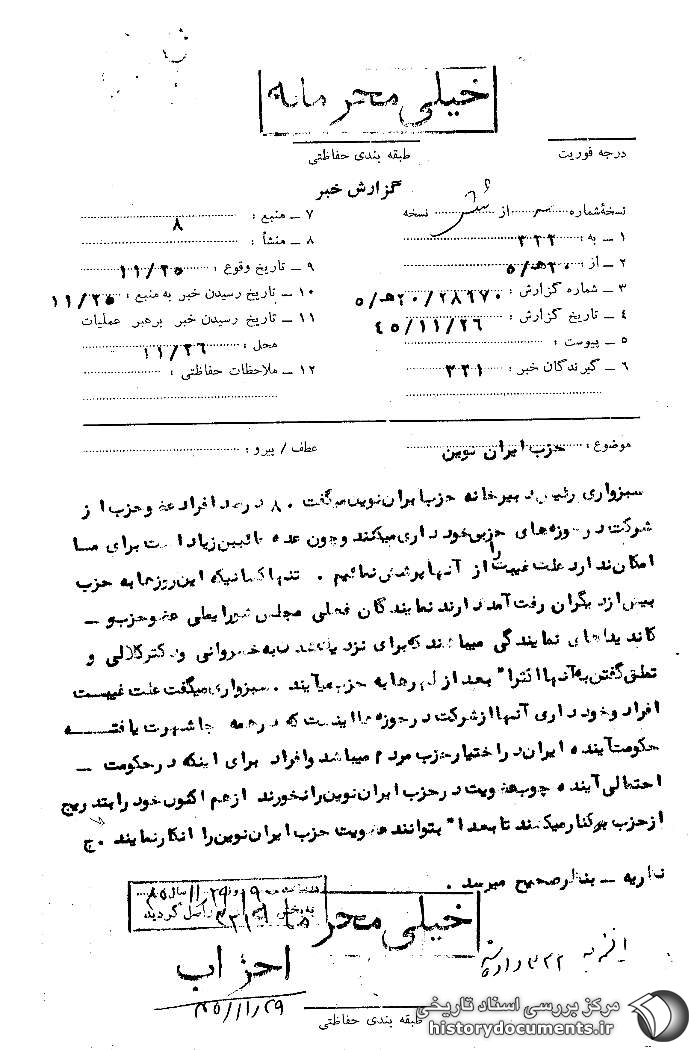 خیلی محرمانه
درجه فوریت
طبقه بندی حفاظتی
گزارش خبر
نسخهٔ شماره ۳ از شش نسخه
۱ ــ به : ۳۲۲
۲ ــ از : ۲۰هـ/۵
۳ ــ شماره گزارش : ۲۸۹۷۰/۲۰هـ/۵
۴ ــ تاریخ گزارش : ۴۵/۱۱/۲۶
۵ ــ پیوست :
۶ ــ گیرندگان خبر : ۳۲۱
۷ ــ منبع : ۸
۸ ــ منشأ :
۹ ــ تاریخ وقوع : ۱۱/۲۵
۱۰ ــ تاریخ رسیدن خبر به منبع : ۱۱/۲۵
۱۱ ــ تاریخ رسیدن خبر برهبر عملیات
محل : ۱۱/۲۶
۱۲ ــ ملاحظات حفاظتی :
موضوع : حزب ایران نوین
عطف / پیرو :
سبزواری رئیس دبیرخانه حزب ایران نوین میگفت . ۸۰ درصد افراد عضو حزب از
شرکت در حوزه های حزبی خودداری میکنند و چون عده غائبین زیاد است برای مــا
امکان ندارد علت غیبت را از آنها پرسش نمائیم . تنها کسانیکه این روزها به حزب
بیش از دیگران رفت آمد دارند نمایندگان فعلی مجلس شورایملی عضو حزب و ــ
کاندیداهای نمایندگی میباشند که برای نزدیک شدن به خسروانی و دکتر کلالی و
تملق گفتن به آنها اکثرا" بعد از ظهرها به حزب میآیند . سبزواری میگفت علت غیبت
افراد و خودداری آنها از شرکت در حوزه ها اینست که در همه جا شهرت یافتــــه
حکومت آینده ایران در اختیار حزب مردم میباشد و افراد برای اینکه در حکومت ــ
احتمالی آینده چوب عضویت در حزب ایران نوین را نخورند از هم اکنون خود را بتدریج
از حزب برکنار میکنند تا بعدا" بتوانند عضویت حزب ایران نوین را انکار نمایند . ج
نظریه ــ بنظر صحیح میرسد .
خیلی محرما
احزاب
۴۵/۱۱/۲۹
طبقه بندی حفاظتی
مرکز بررسی اسناد تاریخی
historydocuments.ir